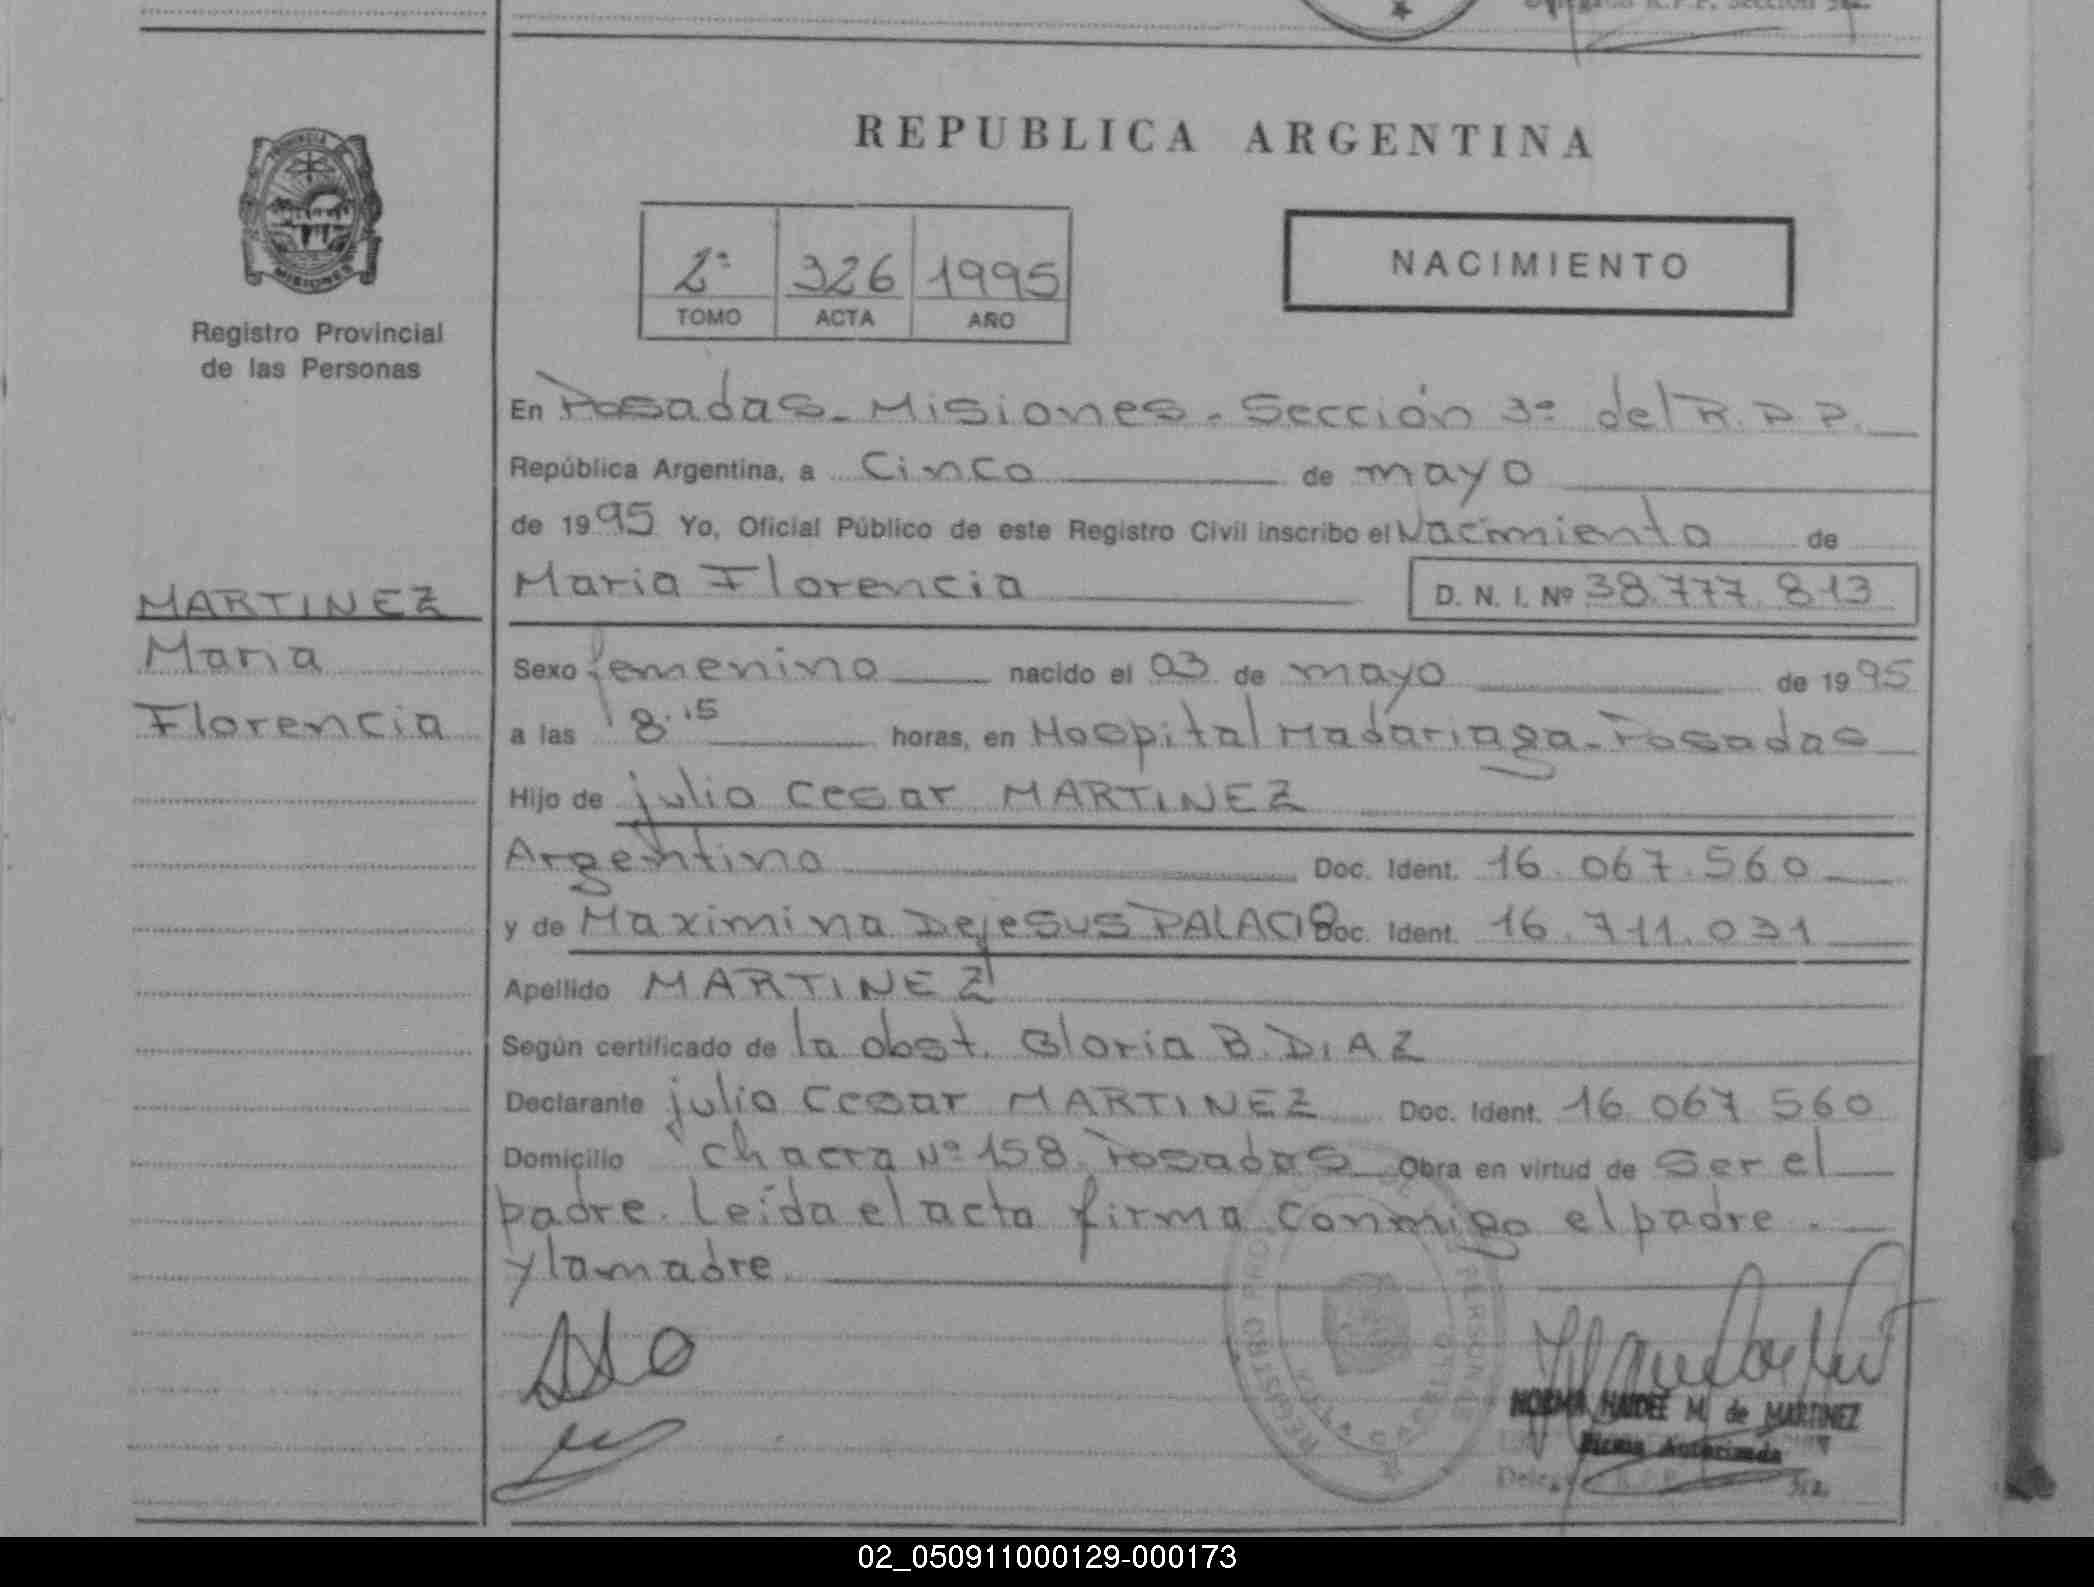 REPUBLICA ARGENTINA
PROVINCIA
MISIONES
Registro Provincial
de las Personas
2ª 326 1995
TOMO ACTA AÑO
NACIMIENTO
En Posadas - Misiones - Sección 3ª del R.P.P.
República Argentina, a Cinco de mayo
de 1995 Yo, Oficial Público de este Registro Civil inscribo el Nacimiento de
Maria Florencia D. N. I. Nº 38.777.813
MARTINEZ
Maria
Florencia
Sexo femenino nacido el 03 de mayo de 1995
a las 8.15 horas, en Hospital Madariaga - Posadas
Hijo de julio Cesar MARTINEZ
Argentino Doc. Ident. 16.067.560
y de Maximina DejeSUS PALACIO Doc. Ident. 16.711.031
Apellido MARTINEZ
Según certificado de la obst. Gloria B. DIAZ
Declarante julio Cesar MARTINEZ Doc. Ident. 16 067 560
Domicilio chacra Nº 158 Posadas Obra en virtud de Ser el
padre. Leída el acta firma conmigo el padre
y la madre
NORMA HAIDEE M. de MARTINEZ
Firma Autorizada
02_050911000129-000173